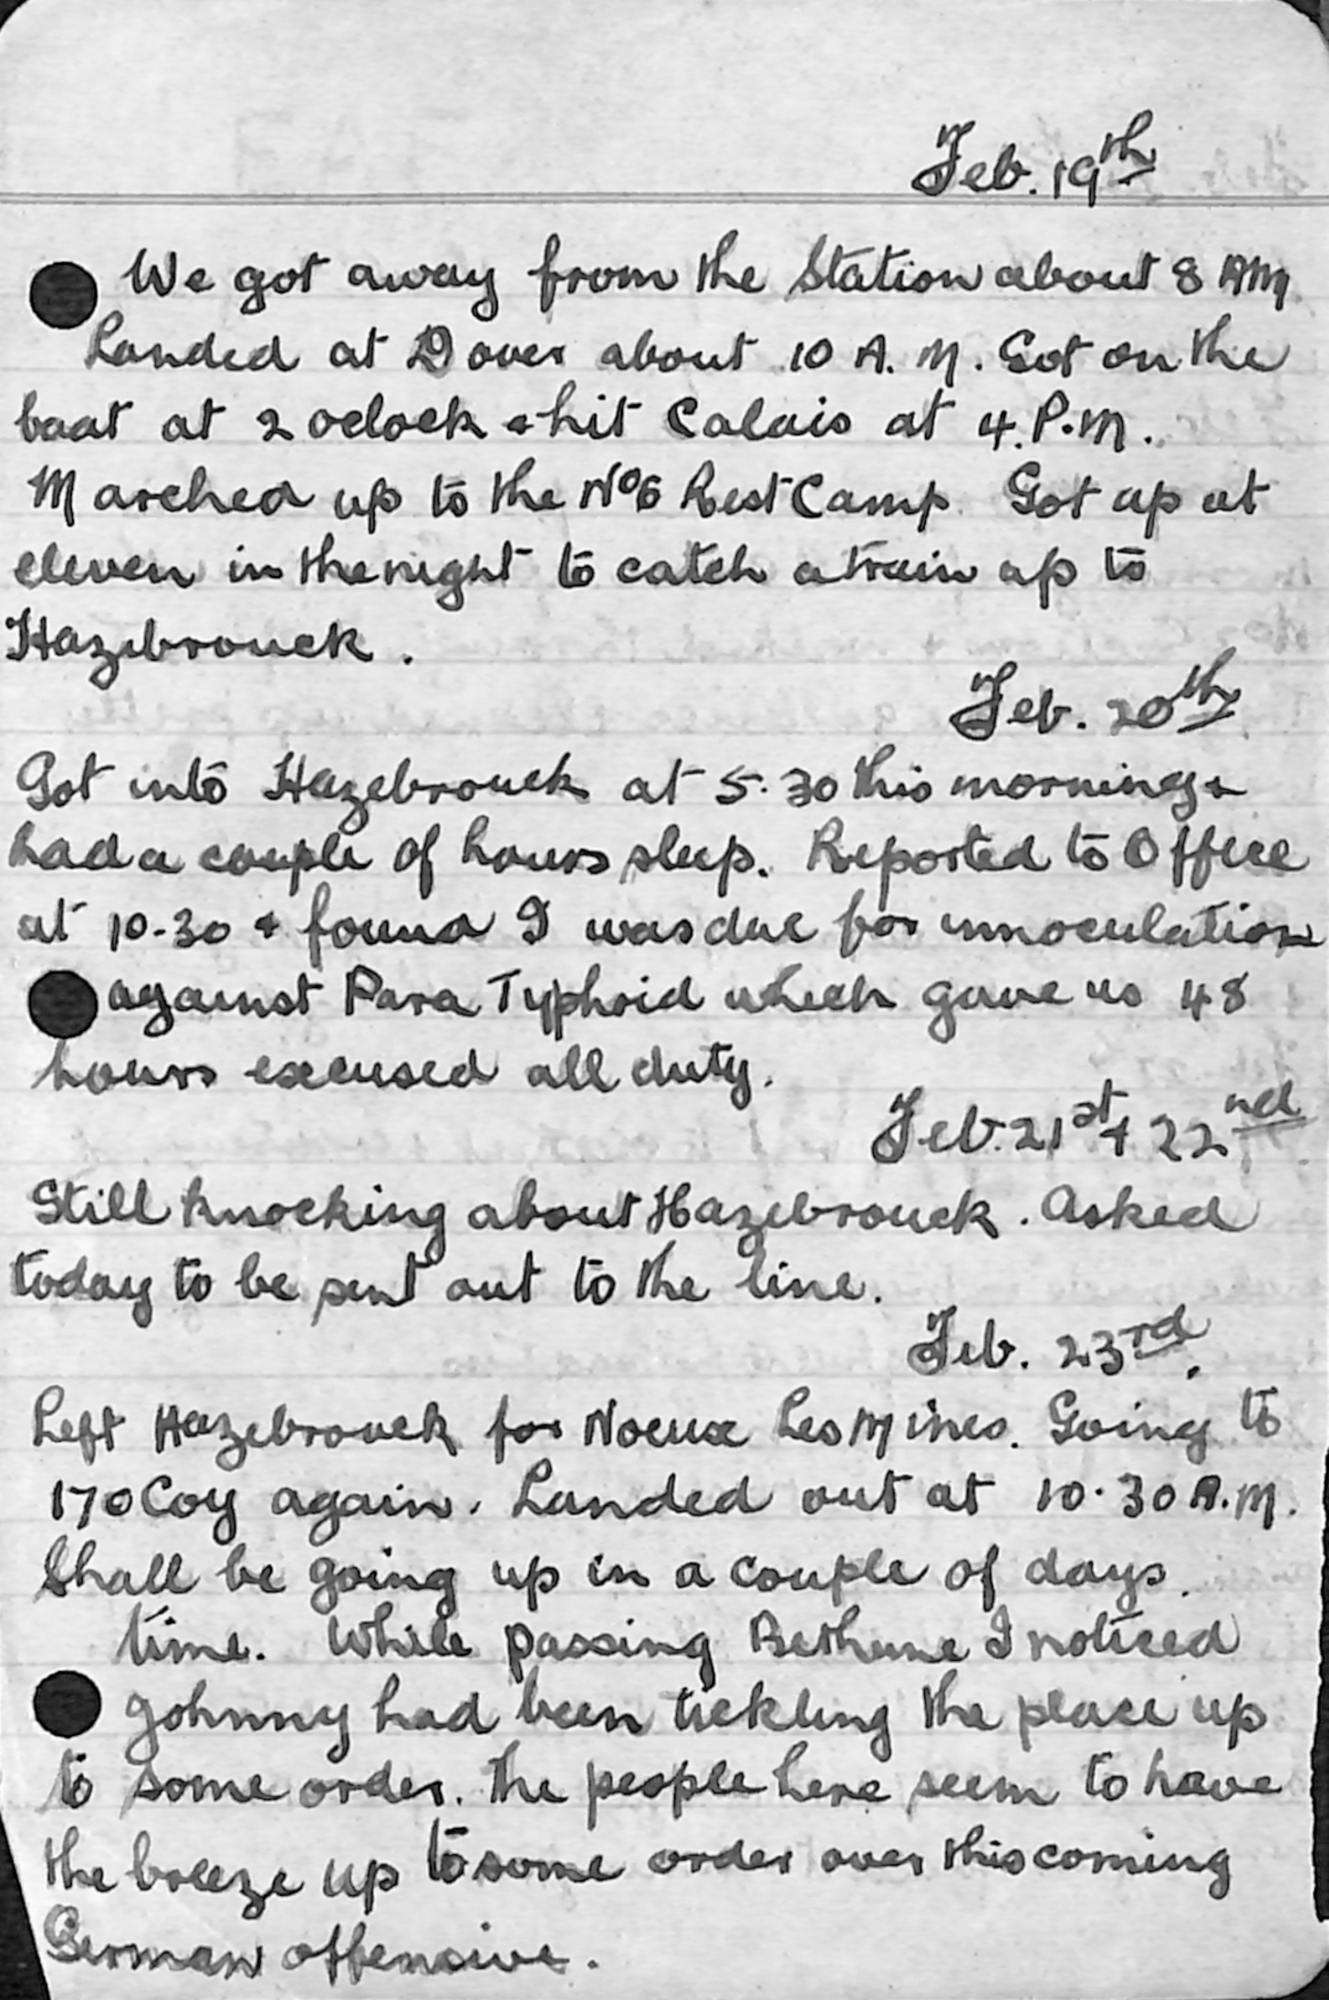 Feb. 19th
We got away from the Station about 8 AM
Landed at Dover about 10 A.M. Got on the
boat at 2 oclock & hit Calais at 4.P.M.
Marched up to the No6 Rest Camp. Got up at
eleven in the night to catch a train up to
Hazebrouck.
Feb. 20th
Got into Hazebrouck at 5.30 this morning &
had a couple of hours sleep. Reported to Office
at 10-30 & found I was due for innoculation
against Para Typhoid which gave us 48
hours excused all duty.
Feb. 21st & 22nd
Still knocking about Hazebrouck. Asked
today to be sent out to the line.
Feb. 23rd.
Left Hazebrouck for Noeux Les Mines. Going to
170 Coy again. Landed out at 10.30 A.M.
Shall be going up in a couple of days
time. While passing Bethune I noticed
Johnny had been tickling the place up
to some order. The people here seem to have
the breeze up to some order over this coming
German offensive.